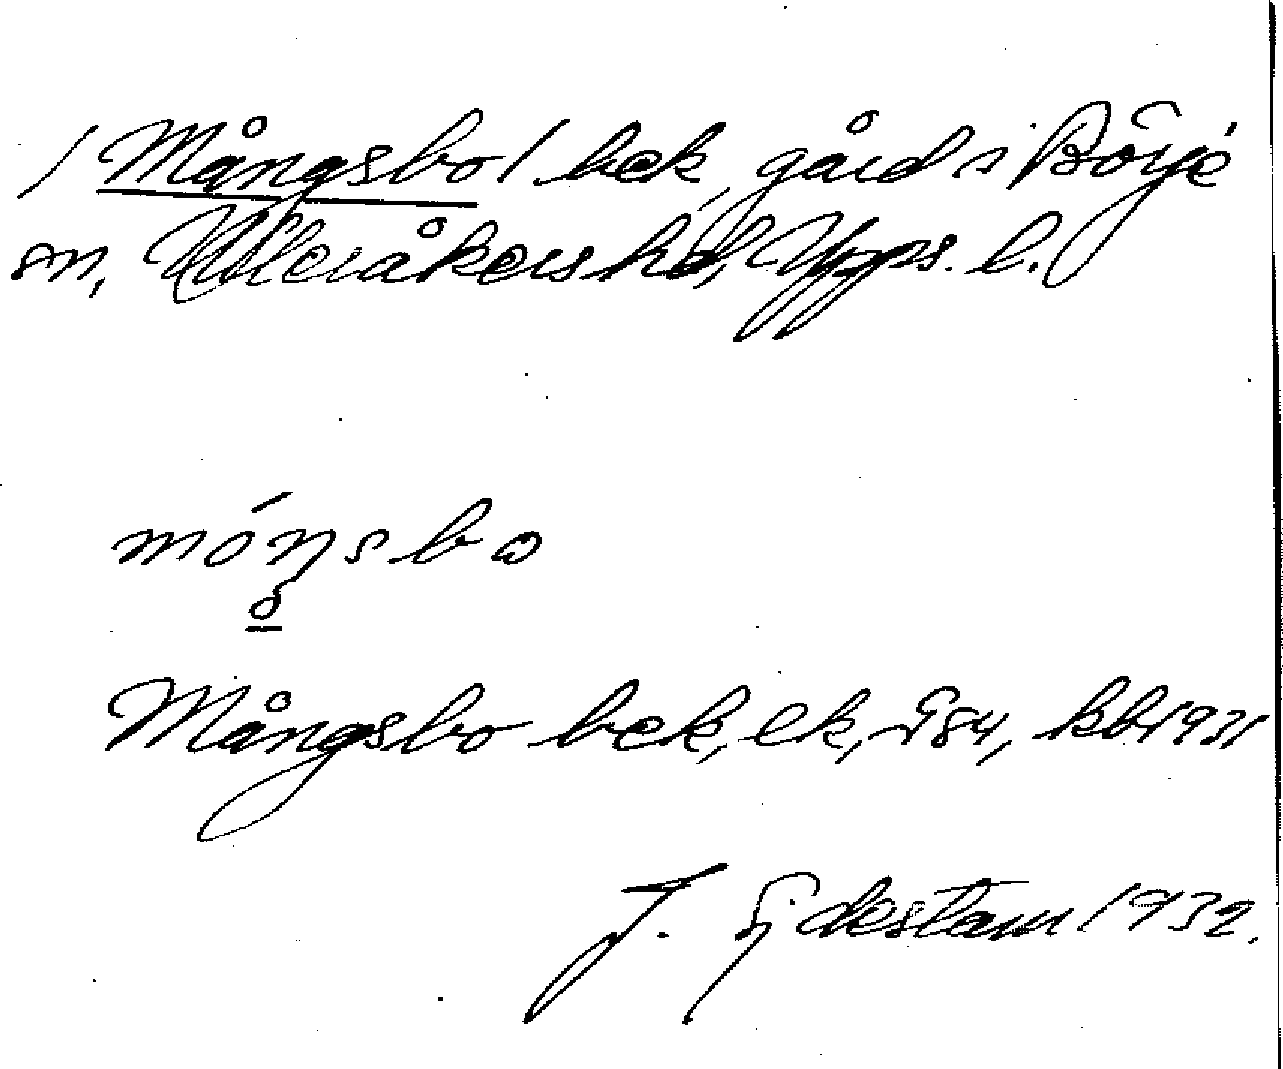 /Mångsbo/ bek, gård i Börje
sn, Ulleråkers hd, Upps. l.
móŋsbo
o
Mångsbo bek, ek, 984, kb 1931
J. Ejdestam 1932.